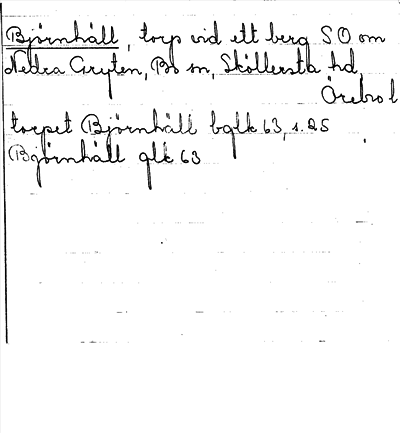 Björnhäll, torp vid ett berg SO om
Nedra Gryten, Bo sn, Sköllersta hd,
Örebro l
torpet Björnhäll bglk 63, s. 25
Björnhäll glk 63